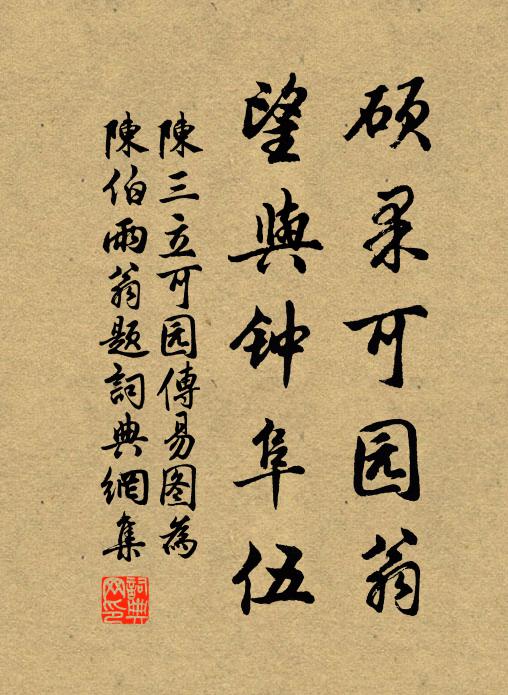 硕果可园翁
望與钟阜伍
陳三立可园傳易图為
陳伯雨翁题詞典網集